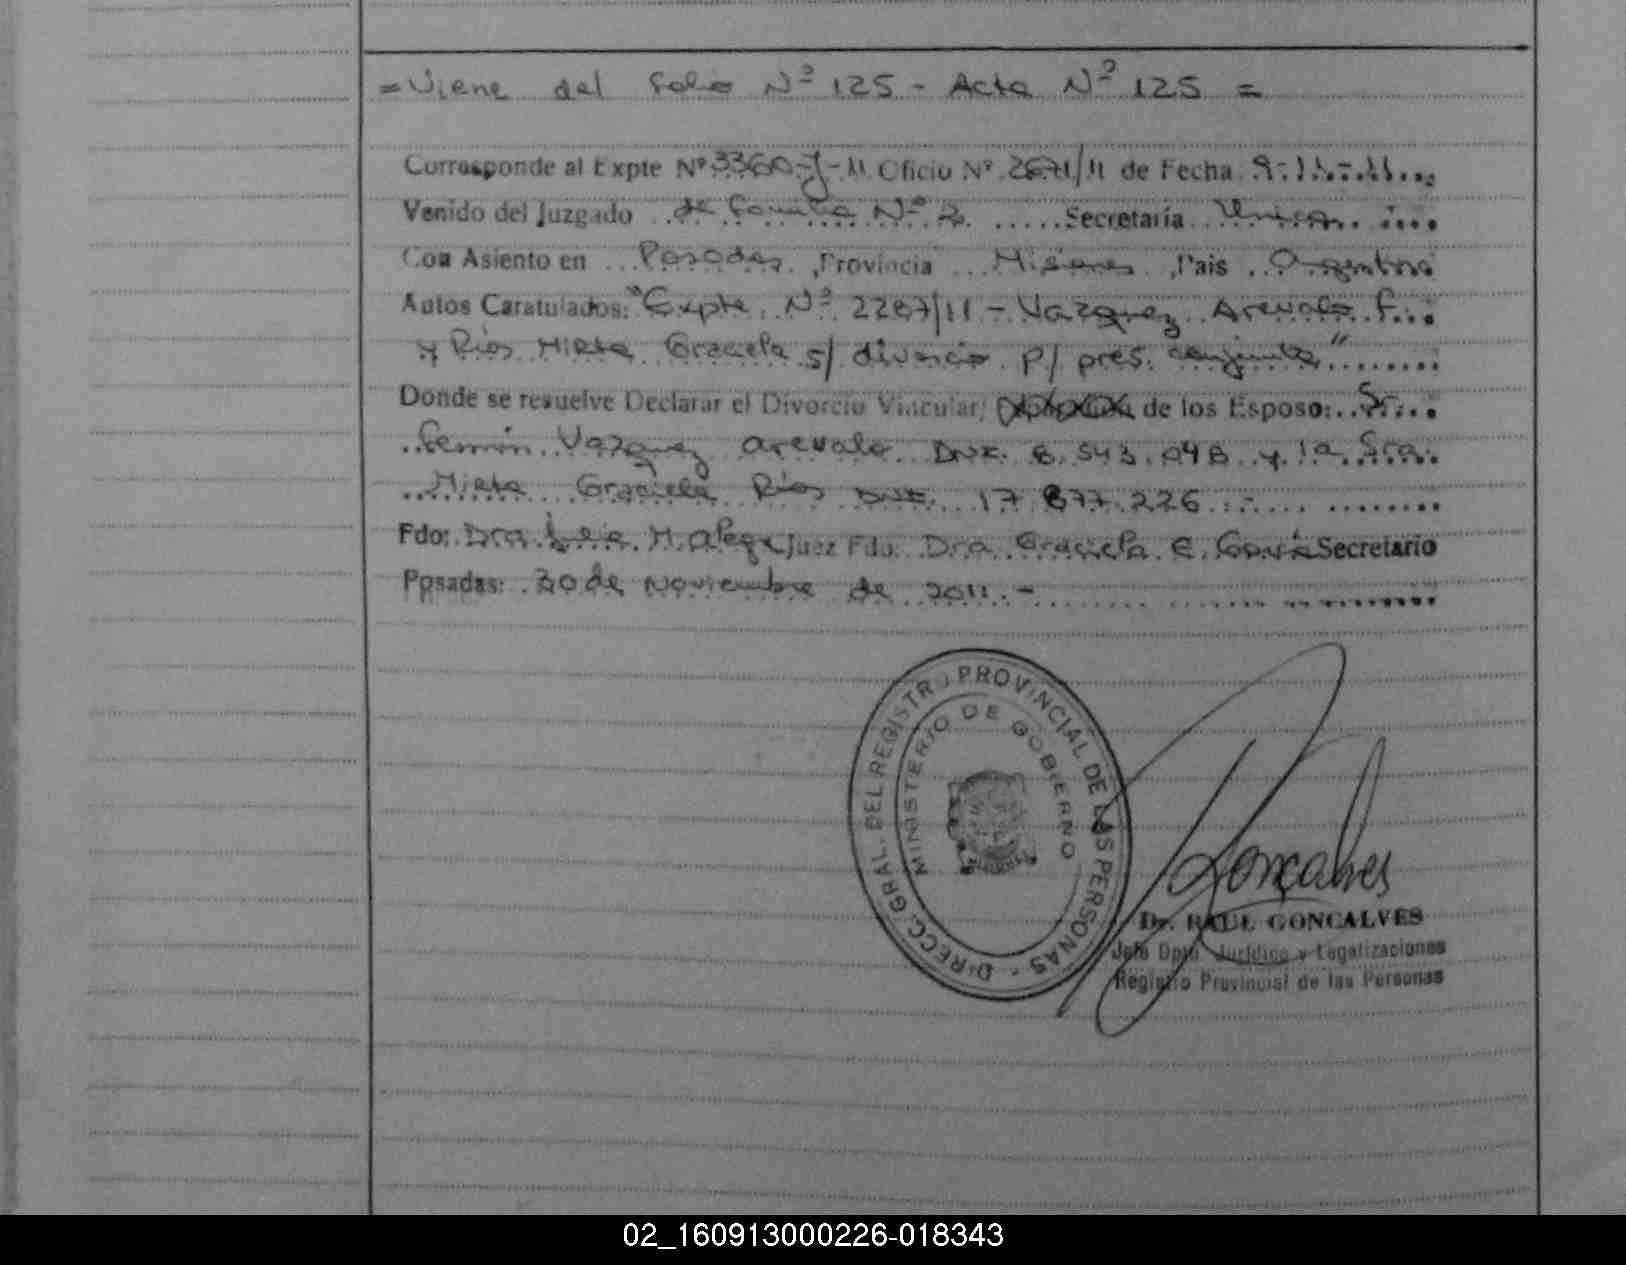 =Viene del Folio Nº 125 - Acta Nº 125 =
Corresponde al Expte Nº 3360-J-11. Oficio Nº 2671/11 de Fecha 9.11.11...
Venido del Juzgado de Familia Nº 2. Secretaría Unica
Con Asiento en Posadas, Provincia Misiones, Pais Argentina
Autos Caratulados: "Expte. Nº 2287/11 - Vazquez Arevalo F.
y Rios Mirta Graciela s/ divorcio p/ pres. conjunta"
Donde se resuelve Declarar el Divorcio Vincular, de los Esposo: Sr.
Fermin Vazquez Arevalo DNI. 8.543.098 y la Sra.
Mirta Graciela Rios DNI. 17.877.226 . -
Fdo: Dra. M. Juez Fdo: Dra. Graciela E. Secretario
Posadas: 30 de Noviembre de 2011. -
DIRECC. GRAL. DEL REGISTRO PROVINCIAL DE LAS PERSONAS -
MINISTERIO DE GOBIERNO
MISIONES
Goncalves
Dr. RAUL GONCALVES
Jefe Dpto. Jurídico y Legalizaciones
Registro Provincial de las Personas
02_160913000226-018343